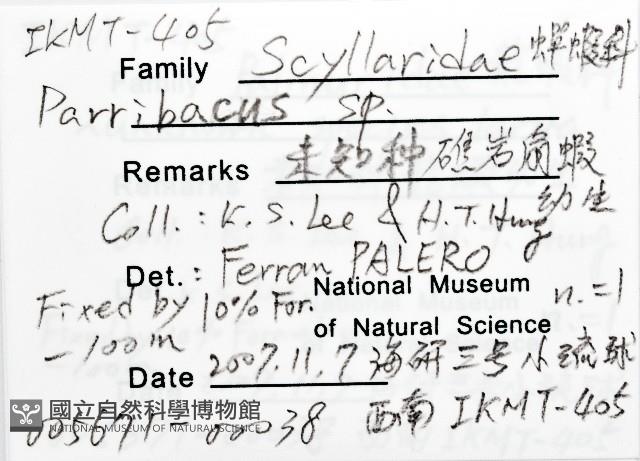 IKMT-405
Family Scyllaridae 蟬蝦科
Parribacus sp.
Remarks 未知种 礁岩扇蝦
Coll.: K. S. Lee & H. T. Hung 幼生
Det.: Ferran PALERO
Fixed by 10% For. National Museum n.=1
-100m of Natural Science
Date 2007.11.7 海研三号 小琉球
國立自然科學博物館
NATIONAL MUSEUM OF NATURAL SCIENCE
西南 IKMT-405